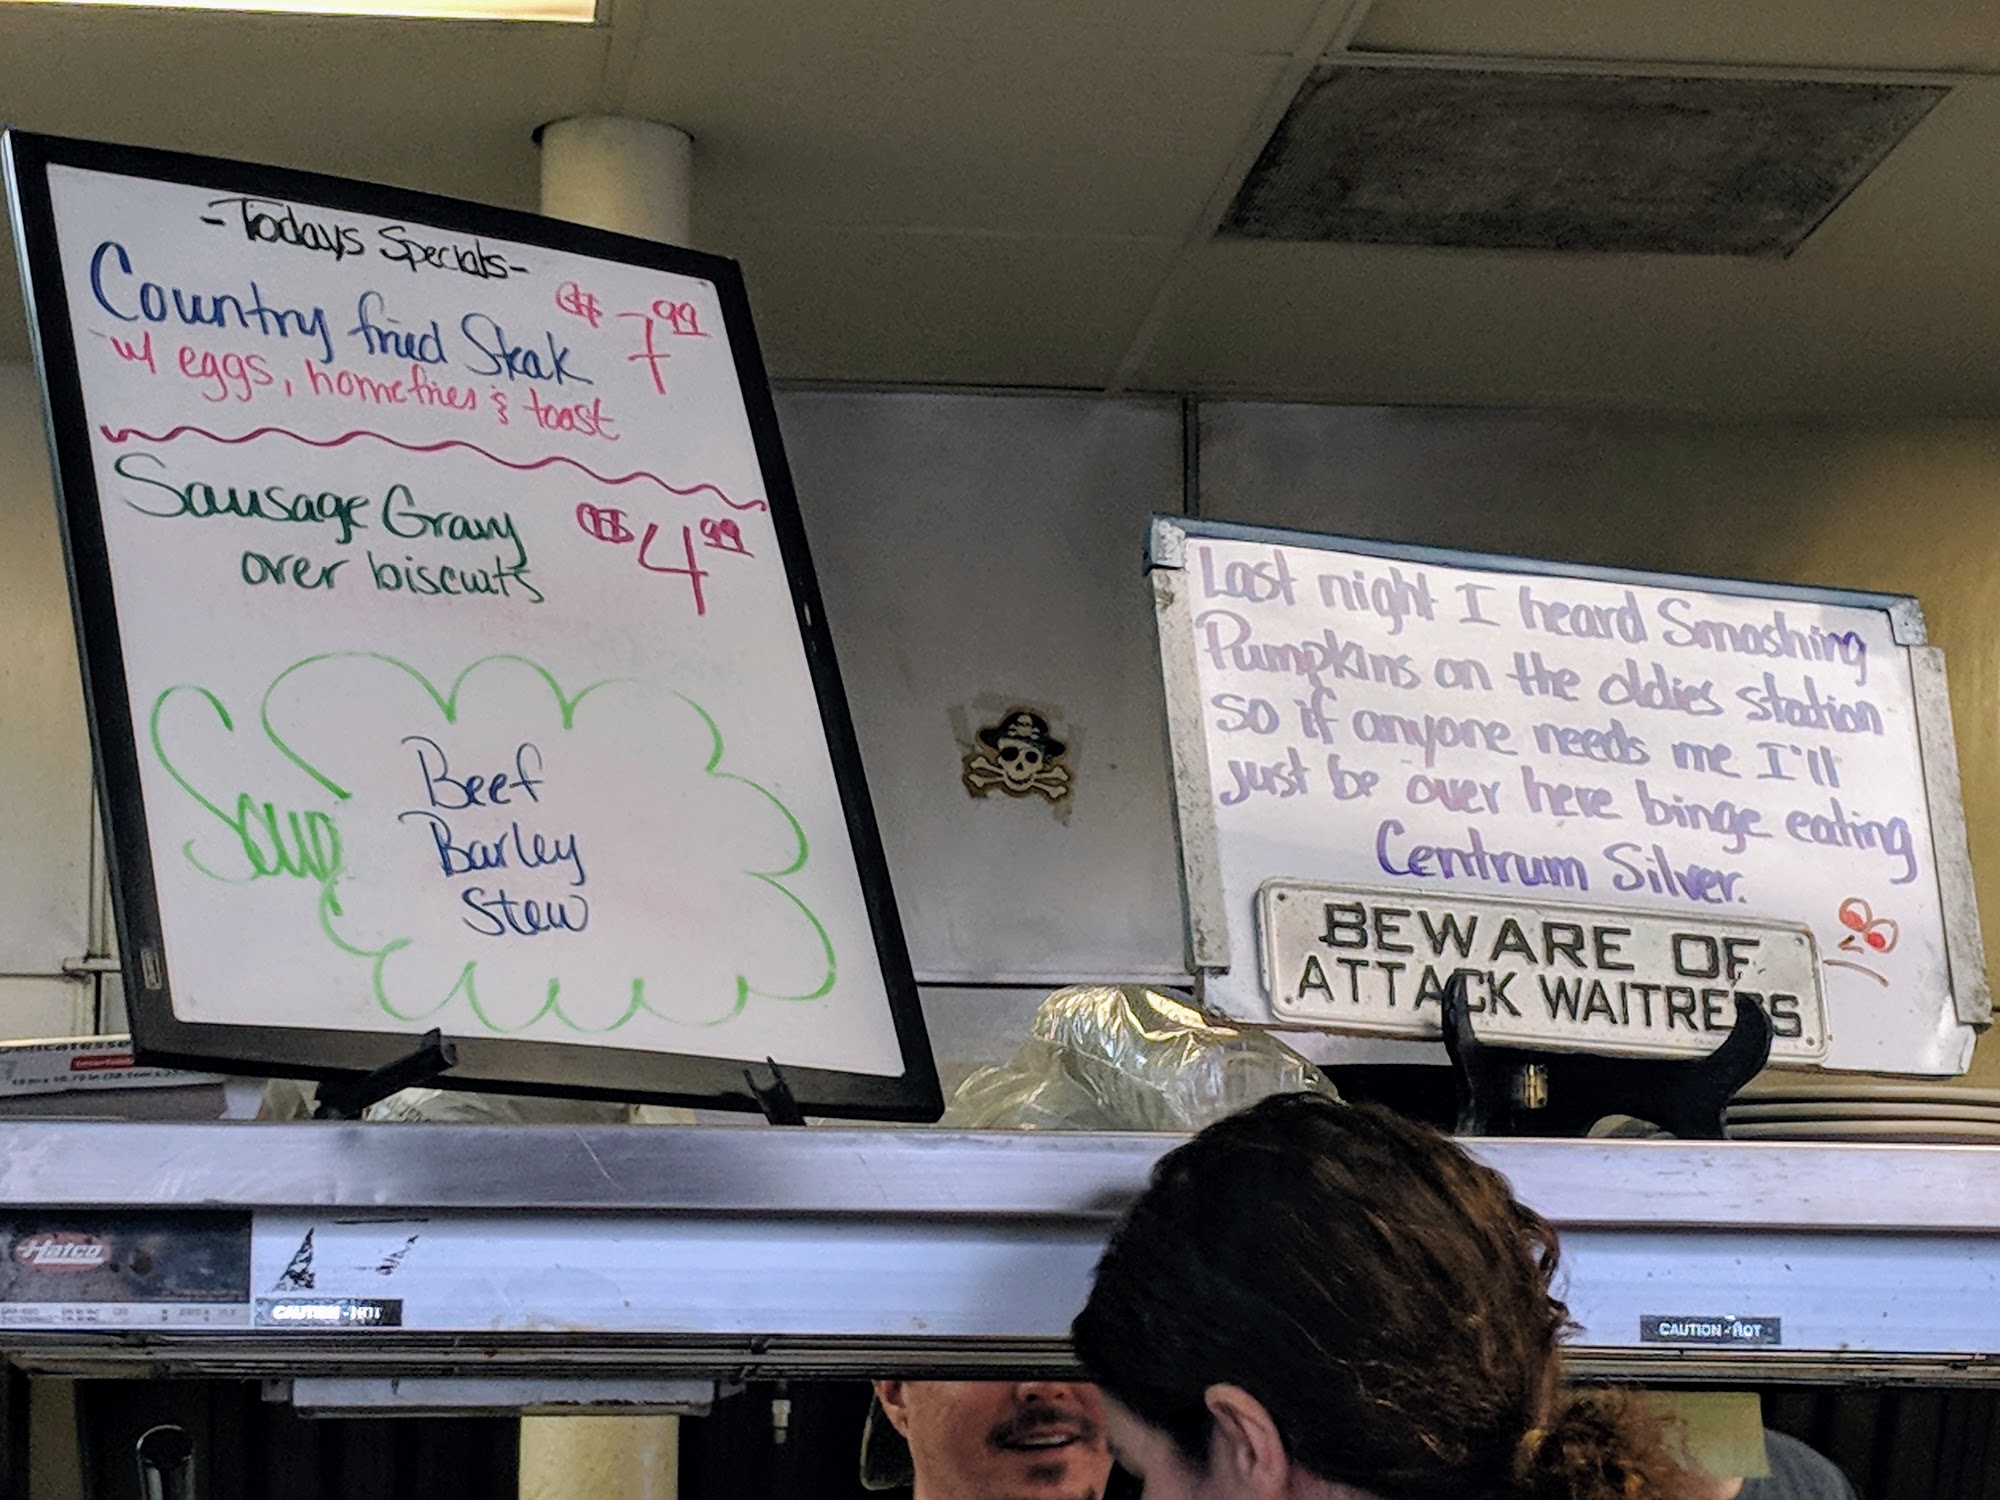 -Todays Specials-
Country fried Steak $7.99
w/ eggs, homefries & toast
Sausage Gravy $4.99
over biscuits
Soup
Beef
Barley
Stew
Last night I heard Smashing
Pumpkins on the oldies station
so if anyone needs me I'll
just be over here binge eating
Centrum Silver.
BEWARE OF
ATTACK WAITRESS
Hatco
CAUTION - HOT
CAUTION - HOT